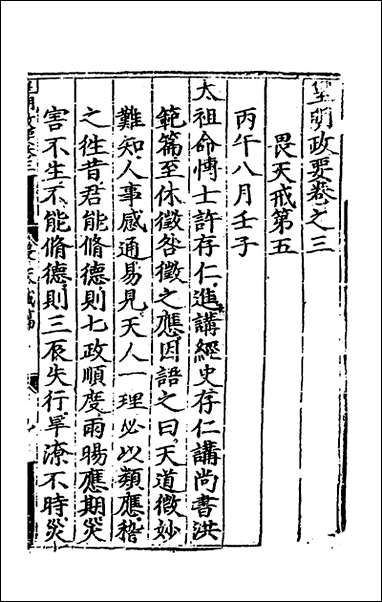 皇明政要卷之三
畏天戒第五
丙午八月壬子
太祖命博士許存仁進講經史存仁講尚書洪
範篇至休徵咎徵之應因語之曰天道微妙
難知人事感通易見天人一理必以類應稽
之徃昔君能脩德則七政順度雨暘應期災
害不生不能脩德則三辰失行旱潦不時災